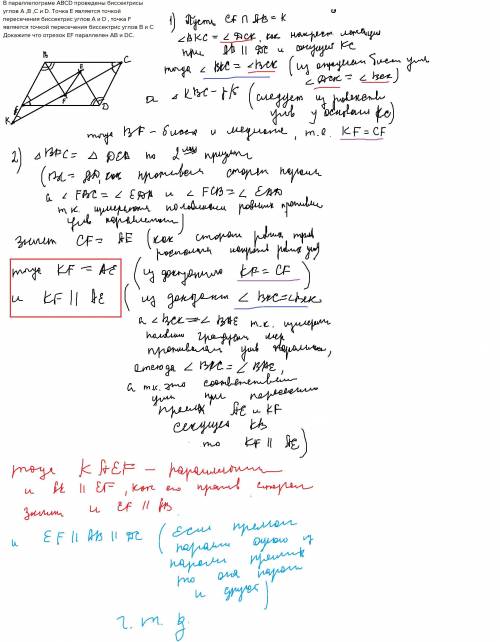 В параллелограме ABCD проведены биссектрисы
углов A ,B ,C и D. Точка E является точкой
пересечения биссектрис углов A и D , точка F
является точкой пересечения биссектрис углов B и C
Докажите что отрезок EF параллелен AB и DC.
B
C
E
F
A
D
K
1) Пусть CF ∩ AB = K
∠AKC = ∠DCK, как накрест лежащ
при AB || DC и секущей KC
тогда ∠BKC = ∠BCK (из определ бисс угла
∠DCK = ∠BCK)
△ KBC – р/б (следует из равенства
углов у основан KC)
тогда BF – бисс и медиана, т.е. KF = CF
2) △BFC = △DEA по 2 признак
(BC = AD, как противопол сторон паралл
а ∠FBC = ∠EDA и ∠FCB = ∠EAD
т.к. измерения половинами равных противоп
углов параллелограм)
значит CF = AE (как стороны равных треуг
располож напротив равных углов)
тогда KF = AE (из доказанного KF = CF)
и KF || AE (из доказан ∠BKC = ∠BCK
а ∠BCK = ∠BAE т.к. измерен
половин градусн мер
противопол углов паралл,
отсюда ∠BKC = ∠BAE,
а т.к. это соответствен
углы при пересечении
прямых AE и KF
секущей KB
то KF || AE)
тогда KAEF – параллелограм
и AK || EF, как его против сторон
значит и EF || AB
и EF || AB || DC (Если прямая
паралл одной из
паралл прямых
то она паралл
и другой)
ч. т. д.